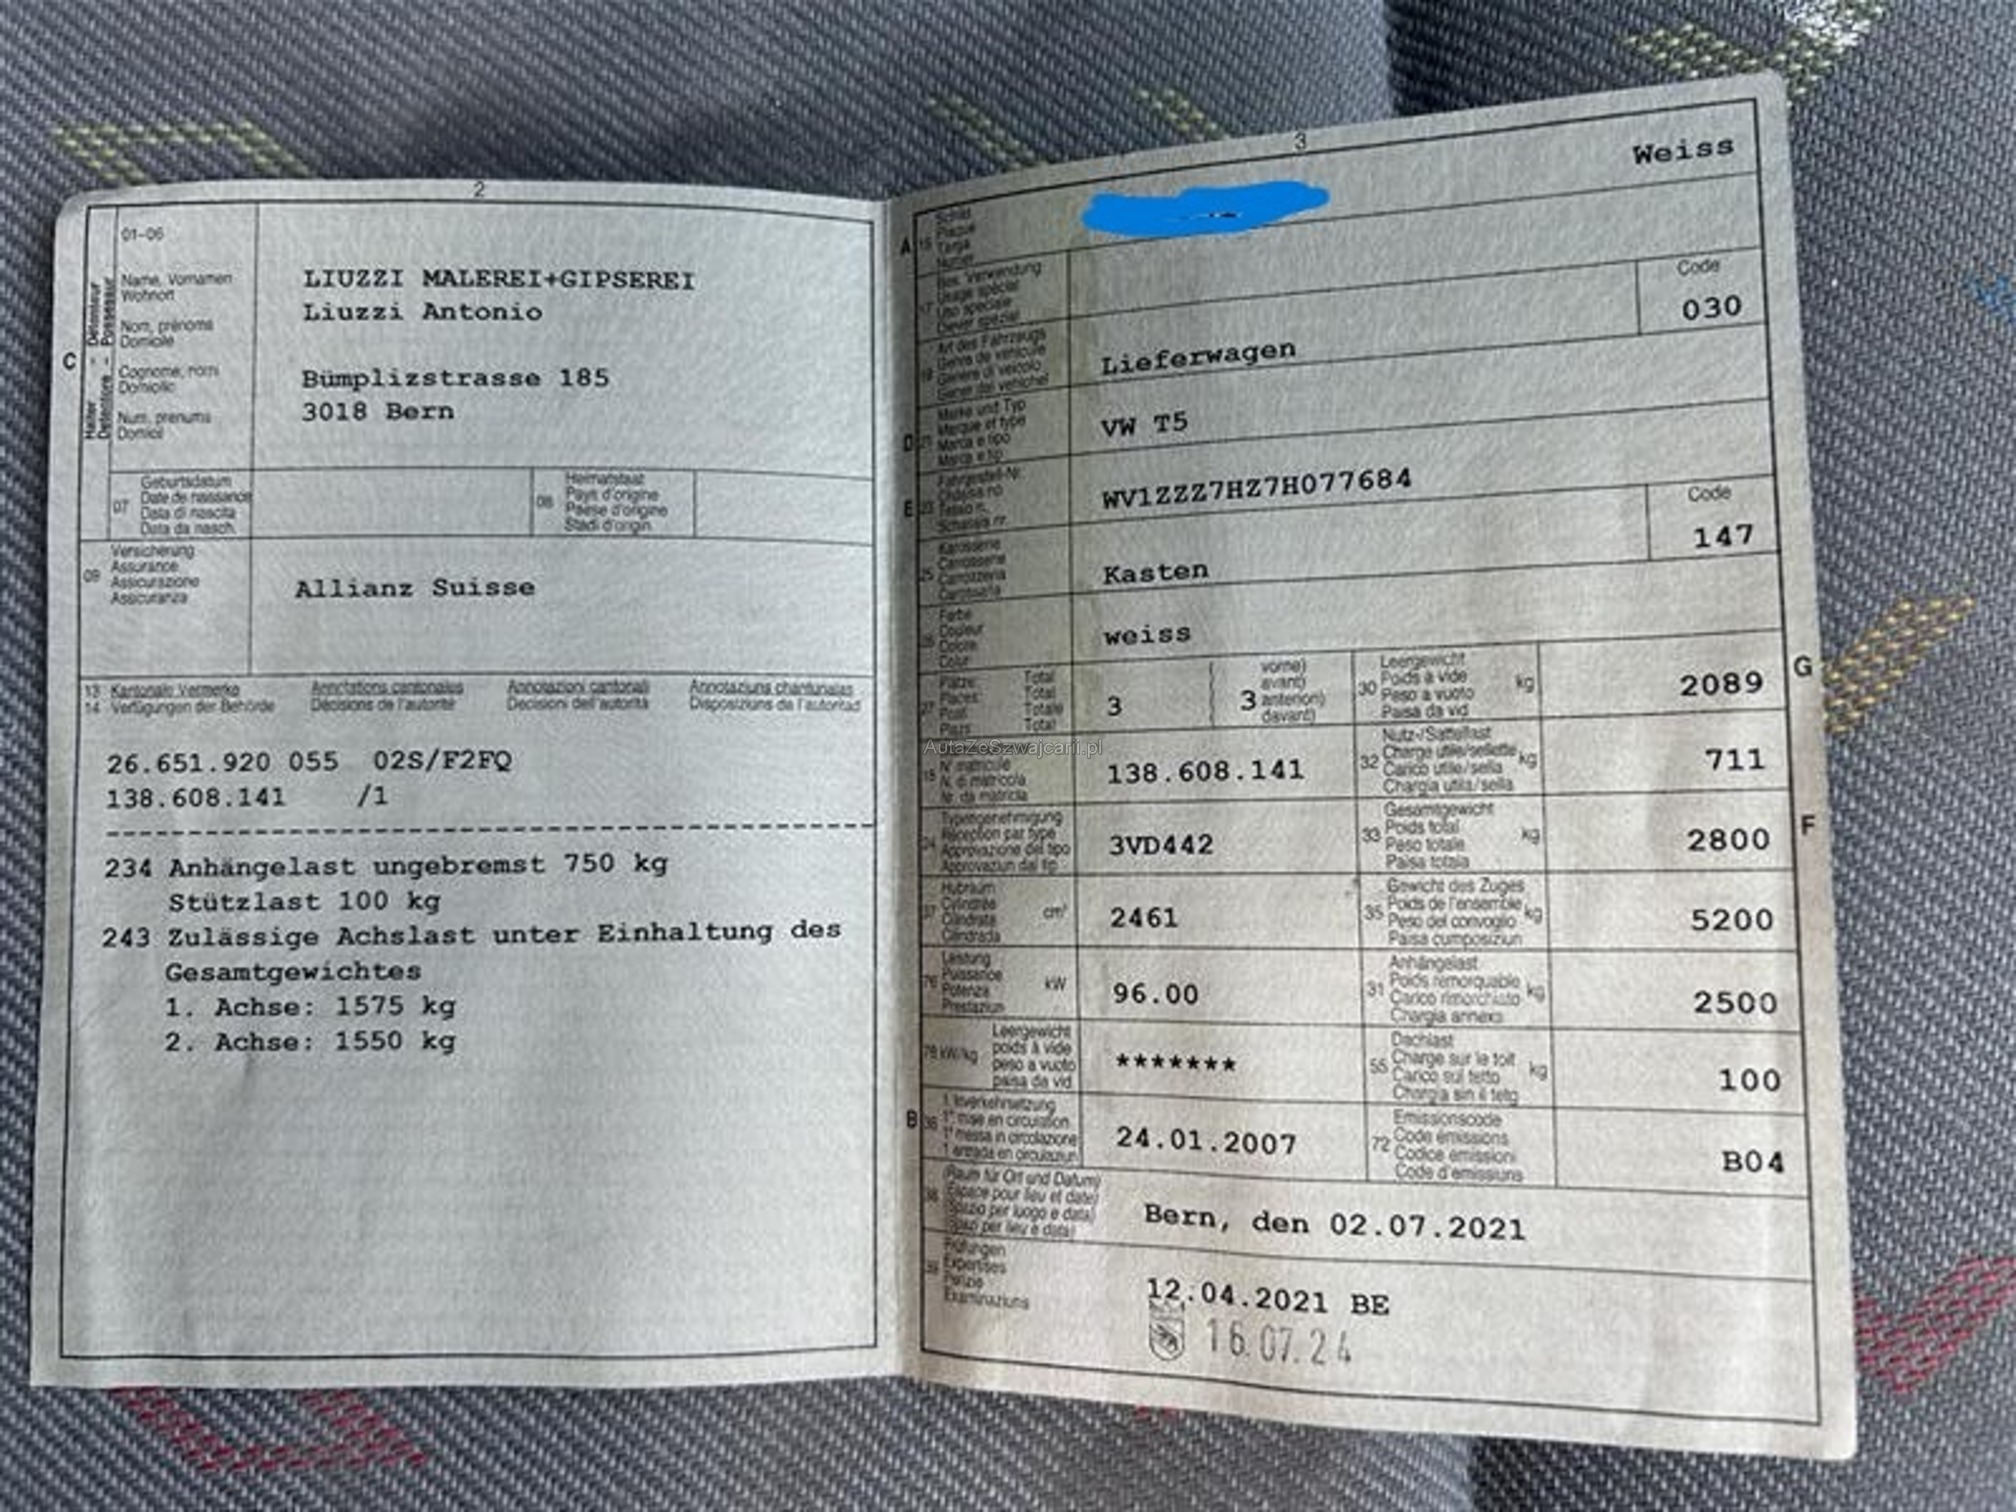 2
01-06
Halter - Détenteur
Detentore - Possessur
C
Name, Vornamen
Wohnort
Nom, prénoms
Domicile
Cognome, nomi
Domicilio
Num, prenums
Domicil
LIUZZI MALEREI+GIPSEREI
Liuzzi Antonio
Bümplizstrasse 185
3018 Bern
07
Geburtsdatum
Date de naissance
Data di nascita
Data da nasch.
08
Heimatstaat
Pays d'origine
Paese d'origine
Stadi d'origin.
09
Versicherung
Assurance
Assicurazione
Assicuranza
Allianz Suisse
13 Kantonale Vermerke Annotations cantonales Annotazioni cantonali Annotaziuns chantunalas
14 Verfügungen der Behörde Décisions de l'autorité Decisioni dell'autorità Disposiziuns da l'autoritad
26.651.920 055 02S/F2FQ
138.608.141 /1
234 Anhängelast ungebremst 750 kg
Stützlast 100 kg
243 Zulässige Achslast unter Einhaltung des
Gesamtgewichtes
1. Achse: 1575 kg
2. Achse: 1550 kg
3
Weiss
A 15 Schild
Plaque
Targa
Numer
17 Bes. Verwendung
Usage spécial
Uso speciale
Diever spezial
Code
030
19 Art des Fahrzeugs
Genre de véhicule
Genere di veicolo
Gener dal vehichel
Lieferwagen
D 21 Marke und Typ
Marque et type
Marca e tipo
Marca e tip
VW T5
E 23 Fahrgestell-Nr.
Châssis no
Telaio n.
Schassis nr.
WV1ZZZ7HZ7H077684
Code
147
25 Karosserie
Carrosserie
Carrozzeria
Carrosseria
Kasten
26 Farbe
Couleur
Colore
Colur
weiss
27 Plätze: Total
Places: Total
Posti: Totale
Plazs: Total
3
3
vorne)
avant)
anteriori)
davant)
30 Leergewicht
Poids à vide
Peso a vuoto
Paisa da vid
kg
2089
G
AutaZeSzwajcarii.pl
18 N° matricule
N. di matricola
Nr. da matricla
138.608.141
32 Nutz-/Sattellast
Charge utile/sellette
Carico utile/sella
Chargia utila/sella
kg
711
24 Typengenehmigung
Réception par type
Approvazione del tipo
Approvaziun dal tip
3VD442
33 Gesamtgewicht
Poids total
Peso totale
Paisa totala
kg
2800
F
37 Hubraum
Cylindrée
Cilindrata
Cilindrada
cm³
2461
35 Gewicht des Zuges
Poids de l'ensemble
Peso del convoglio
Paisa cumposiziun
kg
5200
76 Leistung
Puissance
Potenza
Prestaziun
kW
96.00
31 Anhängelast
Poids remorquable
Carico rimorchiato
Chargia annexa
kg
2500
78 kW/kg
Leergewicht
poids à vide
peso a vuoto
paisa da vid
*******
55 Dachlast
Charge sur le toit
Carico sul tetto
Chargia sin il tetg
kg
100
B 36 1. Inverkehrsetzung
1re mise en circulation
1a messa in circolazione
1. entrada en circulaziun
24.01.2007
72 Emissionscode
Code émissions
Codice emissioni
Code d'emissiuns
B04
38 (Raum für Ort und Datum)
Espace pour lieu et date)
Spazio per luogo e data)
Spazi per lieu e data)
Bern, den 02.07.2021
39 Prüfungen
Expertises
Perizie
Examinaziuns
12.04.2021 BE
16.07.24